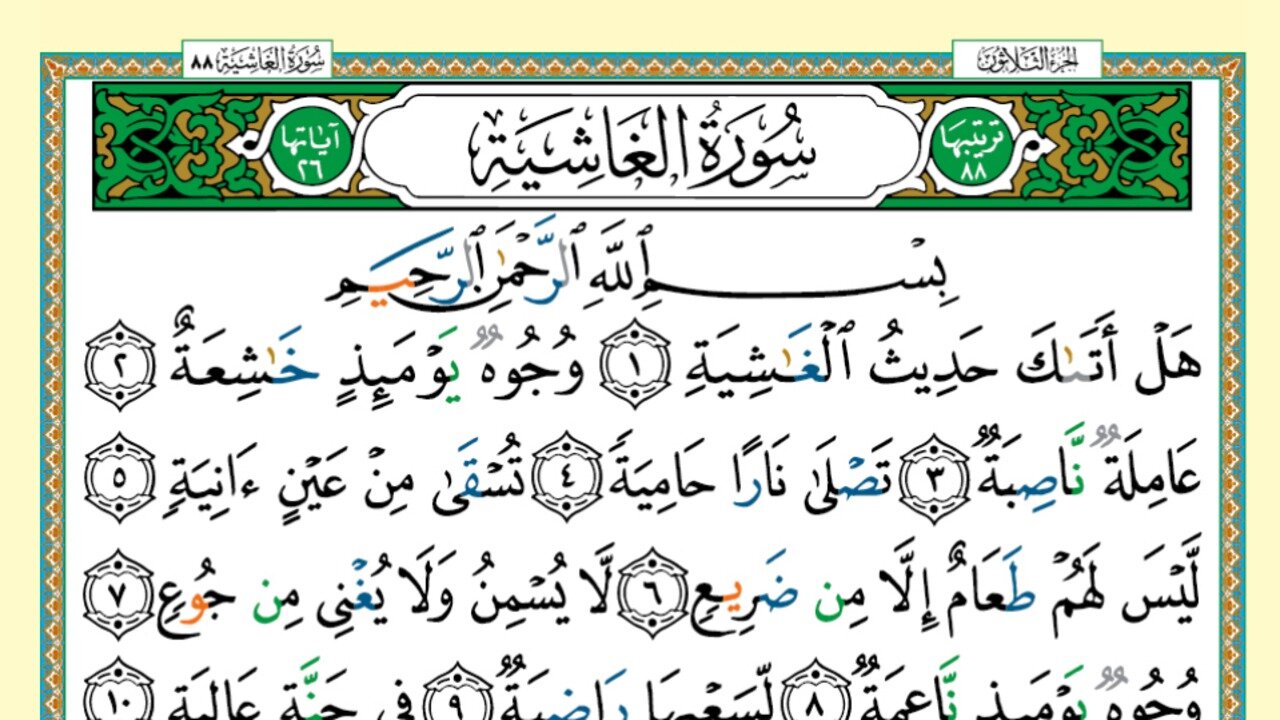 الجزء الثلاثون
سورة الغاشية ٨٨
ترتيبها ٨٨
سُورَةُ الغَاشِيَةِ
آياتها ٢٦
بِسْمِ ٱللَّهِ ٱلرَّحْمَٰنِ ٱلرَّحِيمِ
هَلْ أَتَىٰكَ حَدِيثُ ٱلْغَٰشِيَةِ ١ وُجُوهٌ يَوْمَئِذٍ خَٰشِعَةٌ ٢
عَامِلَةٌ نَّاصِبَةٌ ٣ تَصْلَىٰ نَارًا حَامِيَةً ٤ تُسْقَىٰ مِنْ عَيْنٍ ءَانِيَةٍ ٥
لَّيْسَ لَهُمْ طَعَامٌ إِلَّا مِن ضَرِيعٍ ٦ لَّا يُسْمِنُ وَلَا يُغْنِى مِن جُوعٍ ٧
وُجُوهٌ يَوْمَئِذٍ نَّاعِمَةٌ ٨ لِّسَعْيِهَا رَاضِيَةٌ ٩ فِى جَنَّةٍ عَالِيَةٍ ١٠